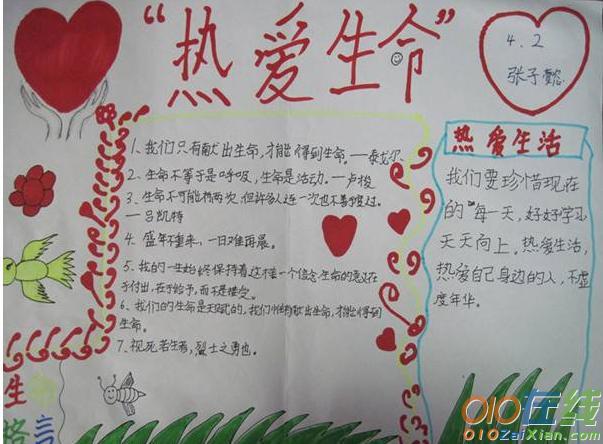 “热爱生命”
4.2
张子懿
1、我们只有献出生命,才能得到生命。—泰戈尔
2、生命不等于是呼吸,生命是活动。—卢梭
3、生命不可能有两次,但许多人连一次也不善于度过。
—吕凯特
4、盛年不重来,一日难再晨。
5、我的一生始终保持着这样一个信念:生命的意义在
于付出,在于给予,而不是接受。
6、我们的生命是天赋的,我们惟有献出生命,才能得到
生命。
7、视死若生者,烈士之勇也。
热爱生活
我们要珍惜现在
的每一天,好好学习
天天向上。热爱生活,
热爱自己身边的人,不虚
度年华。
生命
格言
010在线
010ZaiXian.com